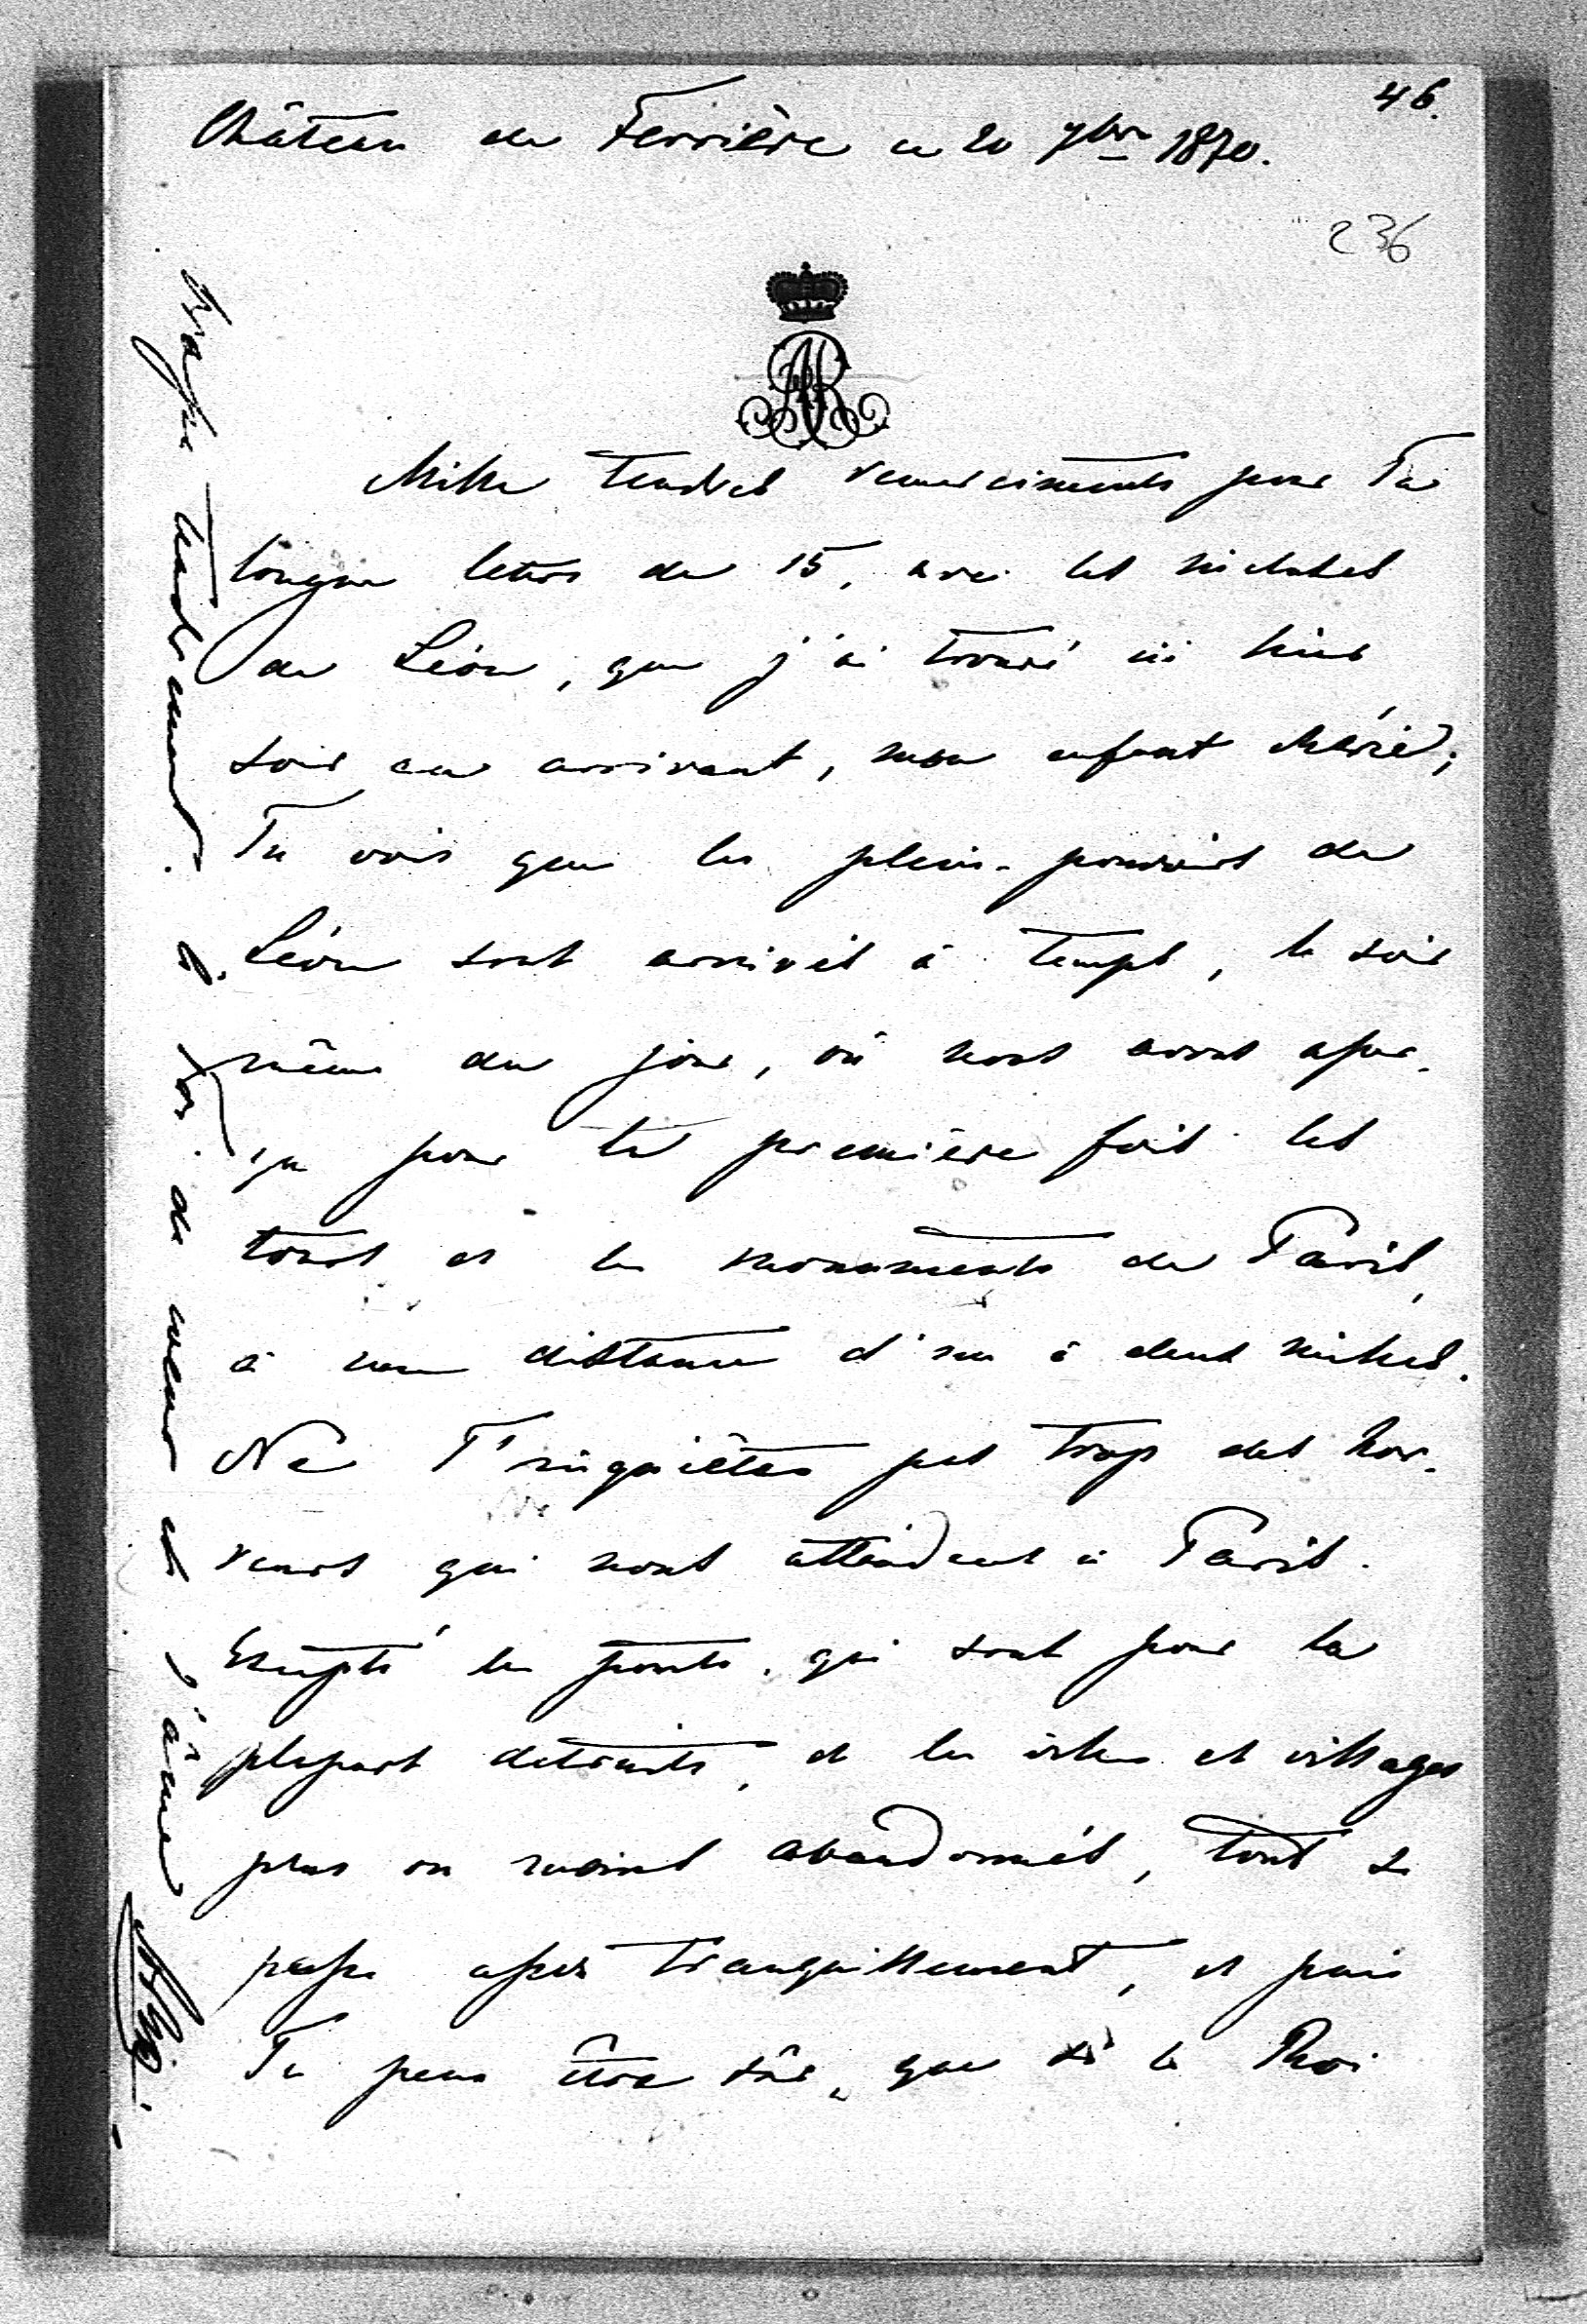 46.
Château de Ferrière ce 20 7bre 1870.
236
AR
Mille tendres remerciments pour Ta
longue lettre du 15, avec les incluses
de Léon, que j'ai trouvé ici hier
soir en arrivant, mon enfant chérie;
Tu vois que les plein-pouvoirs de
Léon sont arrivés à temps, le soir
même du jour, où nous avons aper-
çu pour la première fois les
tours et les monuments de Paris,
à une distance d'un à deux milles.
Ne T'inquiètes pas trop des hor-
reurs qui nous attendent à Paris.
Excepté les ponts, qui sont pour la
plupart détruits, et les villes et villages
plus ou moins abandonnés, tout se
passe assez tranquillement, et puis
Tu peux être sûr, que si le Roi
tendrement. à Toi de coeur et d'âme